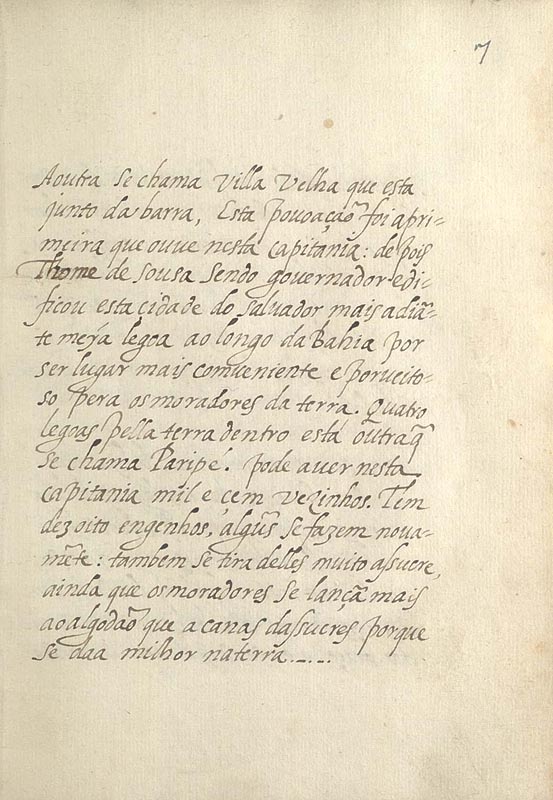 7
Aoutra se chama villa velha que esta
junto da barra, Esta povoação foi apri-
meira que ouve nesta capitania: depois
Thome de sousa sendo governador edi-
ficou esta cidade do salvador mais adiã-
te meya legoa ao longo da Bahia por
ser lugar mais conveniente e porveito-
so pera osmoradores da terra. Quatro
legoas pella terra dentro está outra q̃
se chama Paripé. pode aver nesta
capitania mil e cem vezinhos. Tem
dezoito engenhos, algũs se fazem nova-
mẽte: tambem se tira delles muito assucre,
ainda que osmoradores se lançã mais
ao algodaõ que a canas dassucres porque
se daa milhor naterra.....